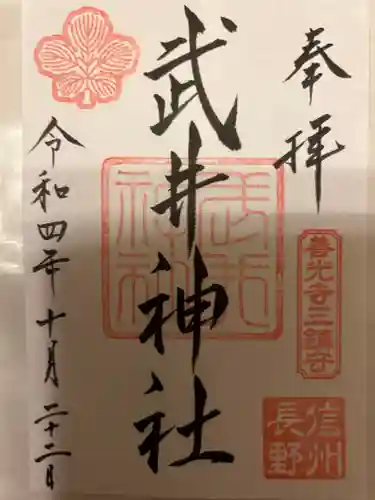 奉拝
善光寺三鎮守
信州
長野
武井神社
令和四年十月二十二日